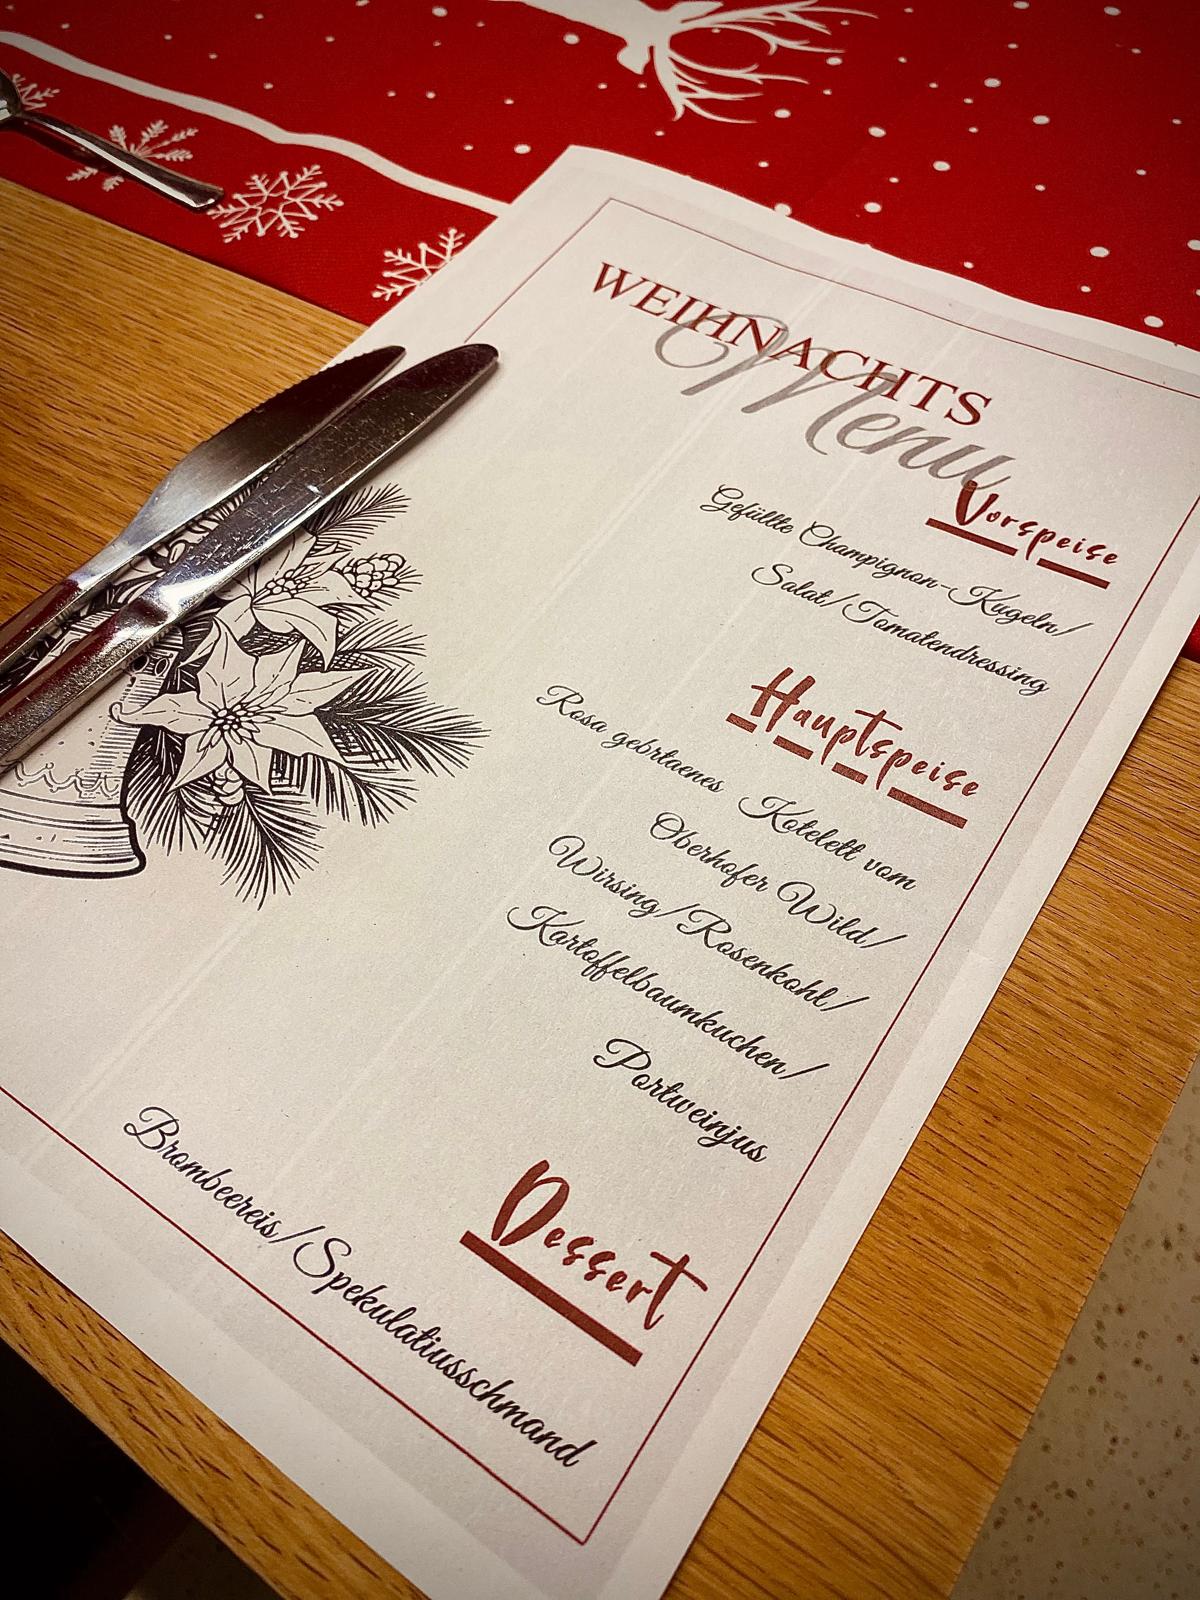 WEIHNACHTS
Menu
Vorspeise
Gefüllte Champignon-Kugeln/
Salat/Tomatendressing
Hauptspeise
Rosa gebrtaenes Kotelett vom
Oberhofer Wild/
Wirsing/Rosenkohl/
Kartoffelbaumkuchen/
Portweinjus
Dessert
Brombeereis/Spekulatiusschmand